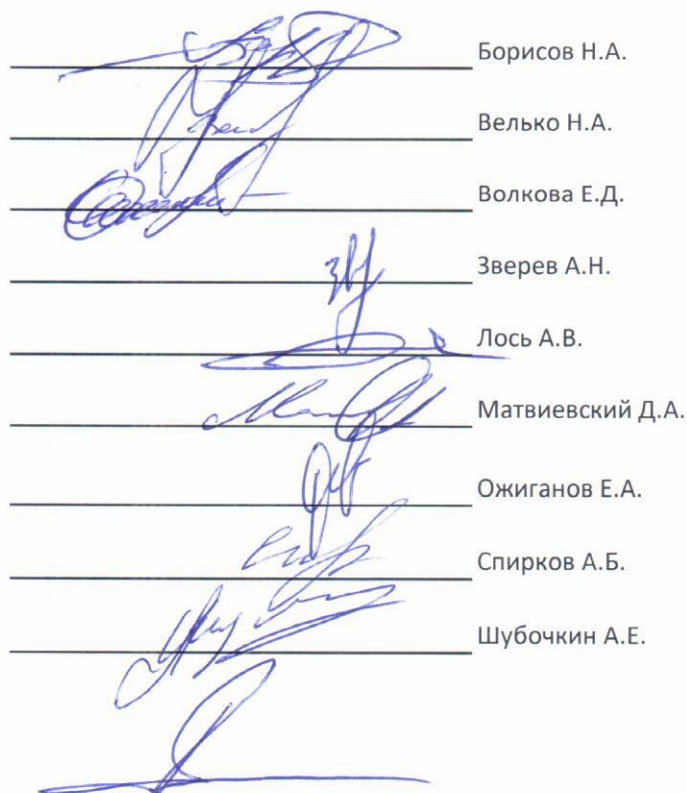 Борисов Н.А.
Велько Н.А.
Волкова Е.Д.
Зверев А.Н.
Лось А.В.
Матвиевский Д.А.
Ожиганов Е.А.
Спирков А.Б.
Шубочкин А.Е.